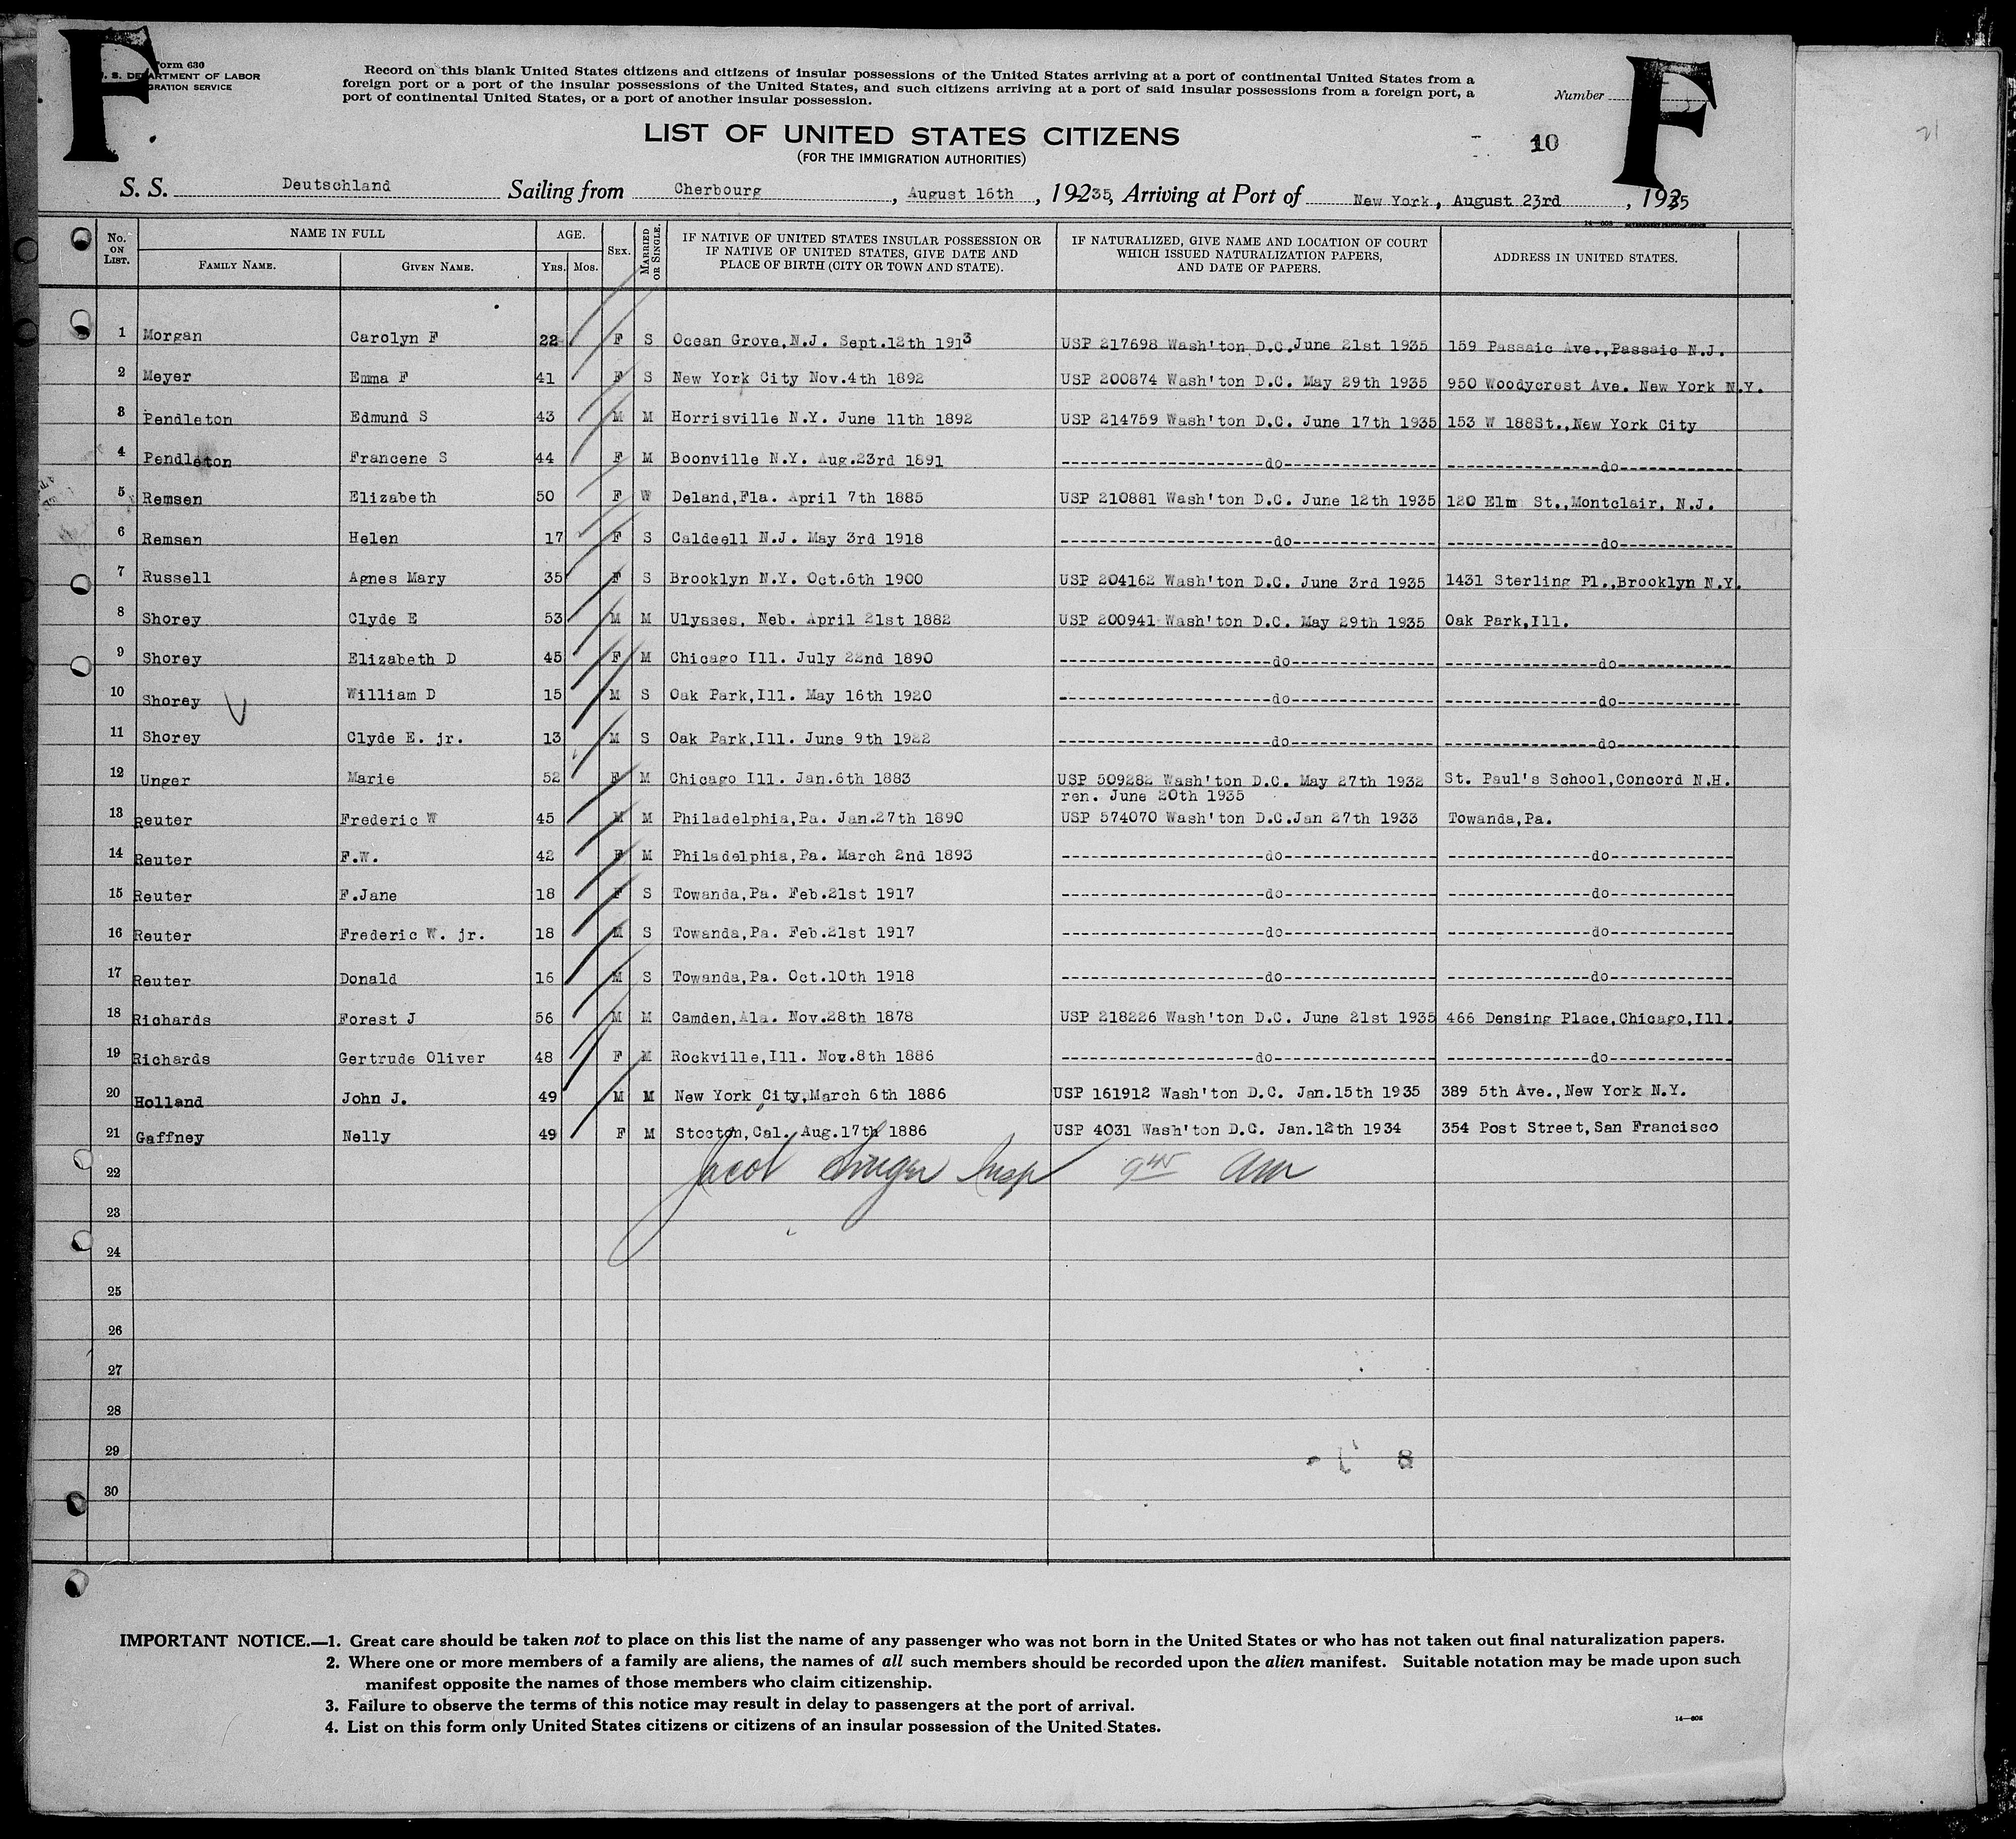 F
Form 630
U. S. DEPARTMENT OF LABOR
IMMIGRATION SERVICE
Record on this blank United States citizens and citizens of insular possessions of the United States arriving at a port of continental United States from a
foreign port or a port of the insular possessions of the United States, and such citizens arriving at a port of said insular possessions from a foreign port, a
port of continental United States, or a port of another insular possession.
Number
F
21
LIST OF UNITED STATES CITIZENS
(FOR THE IMMIGRATION AUTHORITIES)
10
S. S. Deutschland Sailing from Cherbourg, August 16th, 19235, Arriving at Port of New York, August 23rd, 1935
No. ON LIST. NAME IN FULL FAMILY NAME. GIVEN NAME. AGE. YRS. MOS. SEX. MARRIED OR SINGLE. IF NATIVE OF UNITED STATES INSULAR POSSESSION OR IF NATIVE OF UNITED STATES, GIVE DATE AND PLACE OF BIRTH (CITY OR TOWN AND STATE). IF NATURALIZED, GIVE NAME AND LOCATION OF COURT WHICH ISSUED NATURALIZATION PAPERS, AND DATE OF PAPERS. ADDRESS IN UNITED STATES.
1 Morgan Carolyn F 22 F S Ocean Grove,N.J. Sept.12th 1913 USP 217698 Wash'ton D.C.June 21st 1935 159 Passaic Ave.,Passaic N.J.
2 Meyer Emma F 41 F S New York City Nov.4th 1892 USP 200874 Wash'ton D.C. May 29th 1935 950 Woodycrest Ave. New York N.Y.
3 Pendleton Edmund S 43 M M Horrisville N.Y. June 11th 1892 USP 214759 Wash'ton D.C. June 17th 1935 153 W 188St.,New York City
4 Pendleton Francene S 44 F M Boonville N.Y. Aug.23rd 1891 --do-- --do--
5 Remsen Elizabeth 50 F W Deland,Fla. April 7th 1885 USP 210881 Wash'ton D.C. June 12th 1935 120 Elm St.,Montclair, N.J.
6 Remsen Helen 17 F S Caldeell N.J. May 3rd 1918 --do-- --do--
7 Russell Agnes Mary 35 F S Brooklyn N.Y. Oct.6th 1900 USP 204162 Wash'ton D.C. June 3rd 1935 1431 Sterling Pl.,Brooklyn N.Y.
8 Shorey Clyde E 53 M M Ulysses, Neb. April 21st 1882 USP 200941 Wash'ton D.C. May 29th 1935 Oak Park,Ill.
9 Shorey Elizabeth D 45 F M Chicago Ill. July 22nd 1890 --do-- --do--
10 Shorey William D 15 M S Oak Park,Ill. May 16th 1920 --do-- --do--
11 Shorey Clyde E. jr. 13 M S Oak Park,Ill. June 9th 1922 --do-- --do--
12 Unger Marie 52 F M Chicago Ill. Jan.6th 1883 USP 509282 Wash'ton D.C. May 27th 1932 St. Paul's School,Concord N.H.
ren. June 20th 1935
13 Reuter Frederic W 45 M M Philadelphia,Pa. Jan.27th 1890 USP 574070 Wash'ton D.C.Jan 27th 1933 Towanda,Pa.
14 Reuter F.W. 42 F M Philadelphia,Pa. March 2nd 1893 --do-- --do--
15 Reuter F.Jane 18 F S Towanda,Pa. Feb.21st 1917 --do-- --do--
16 Reuter Frederic W. jr. 18 M S Towanda,Pa. Feb.21st 1917 --do-- --do--
17 Reuter Donald 16 M S Towanda,Pa. Oct.10th 1918 --do-- --do--
18 Richards Forest J 56 M M Camden,Ala. Nov.28th 1878 USP 218226 Wash'ton D.C. June 21st 1935 466 Densing Place,Chicago,Ill.
19 Richards Gertrude Oliver 48 F M Rockville,Ill. Nov.8th 1886 --do-- --do--
20 Holland John J. 49 M M New York City,March 6th 1886 USP 161912 Wash'ton D.C. Jan.15th 1935 389 5th Ave.,New York N.Y.
21 Gaffney Nelly 49 F M Stocton,Cal. Aug.17th 1886 USP 4031 Wash'ton D.C. Jan.12th 1934 354 Post Street,San Francisco
22 Jacob Singer Insp 9 45 AM
23
24
25
26
27
28
29 8
30
IMPORTANT NOTICE.—1. Great care should be taken not to place on this list the name of any passenger who was not born in the United States or who has not taken out final naturalization papers.
2. Where one or more members of a family are aliens, the names of all such members should be recorded upon the alien manifest. Suitable notation may be made upon such
manifest opposite the names of those members who claim citizenship.
3. Failure to observe the terms of this notice may result in delay to passengers at the port of arrival.
4. List on this form only United States citizens or citizens of an insular possession of the United States.
14—608